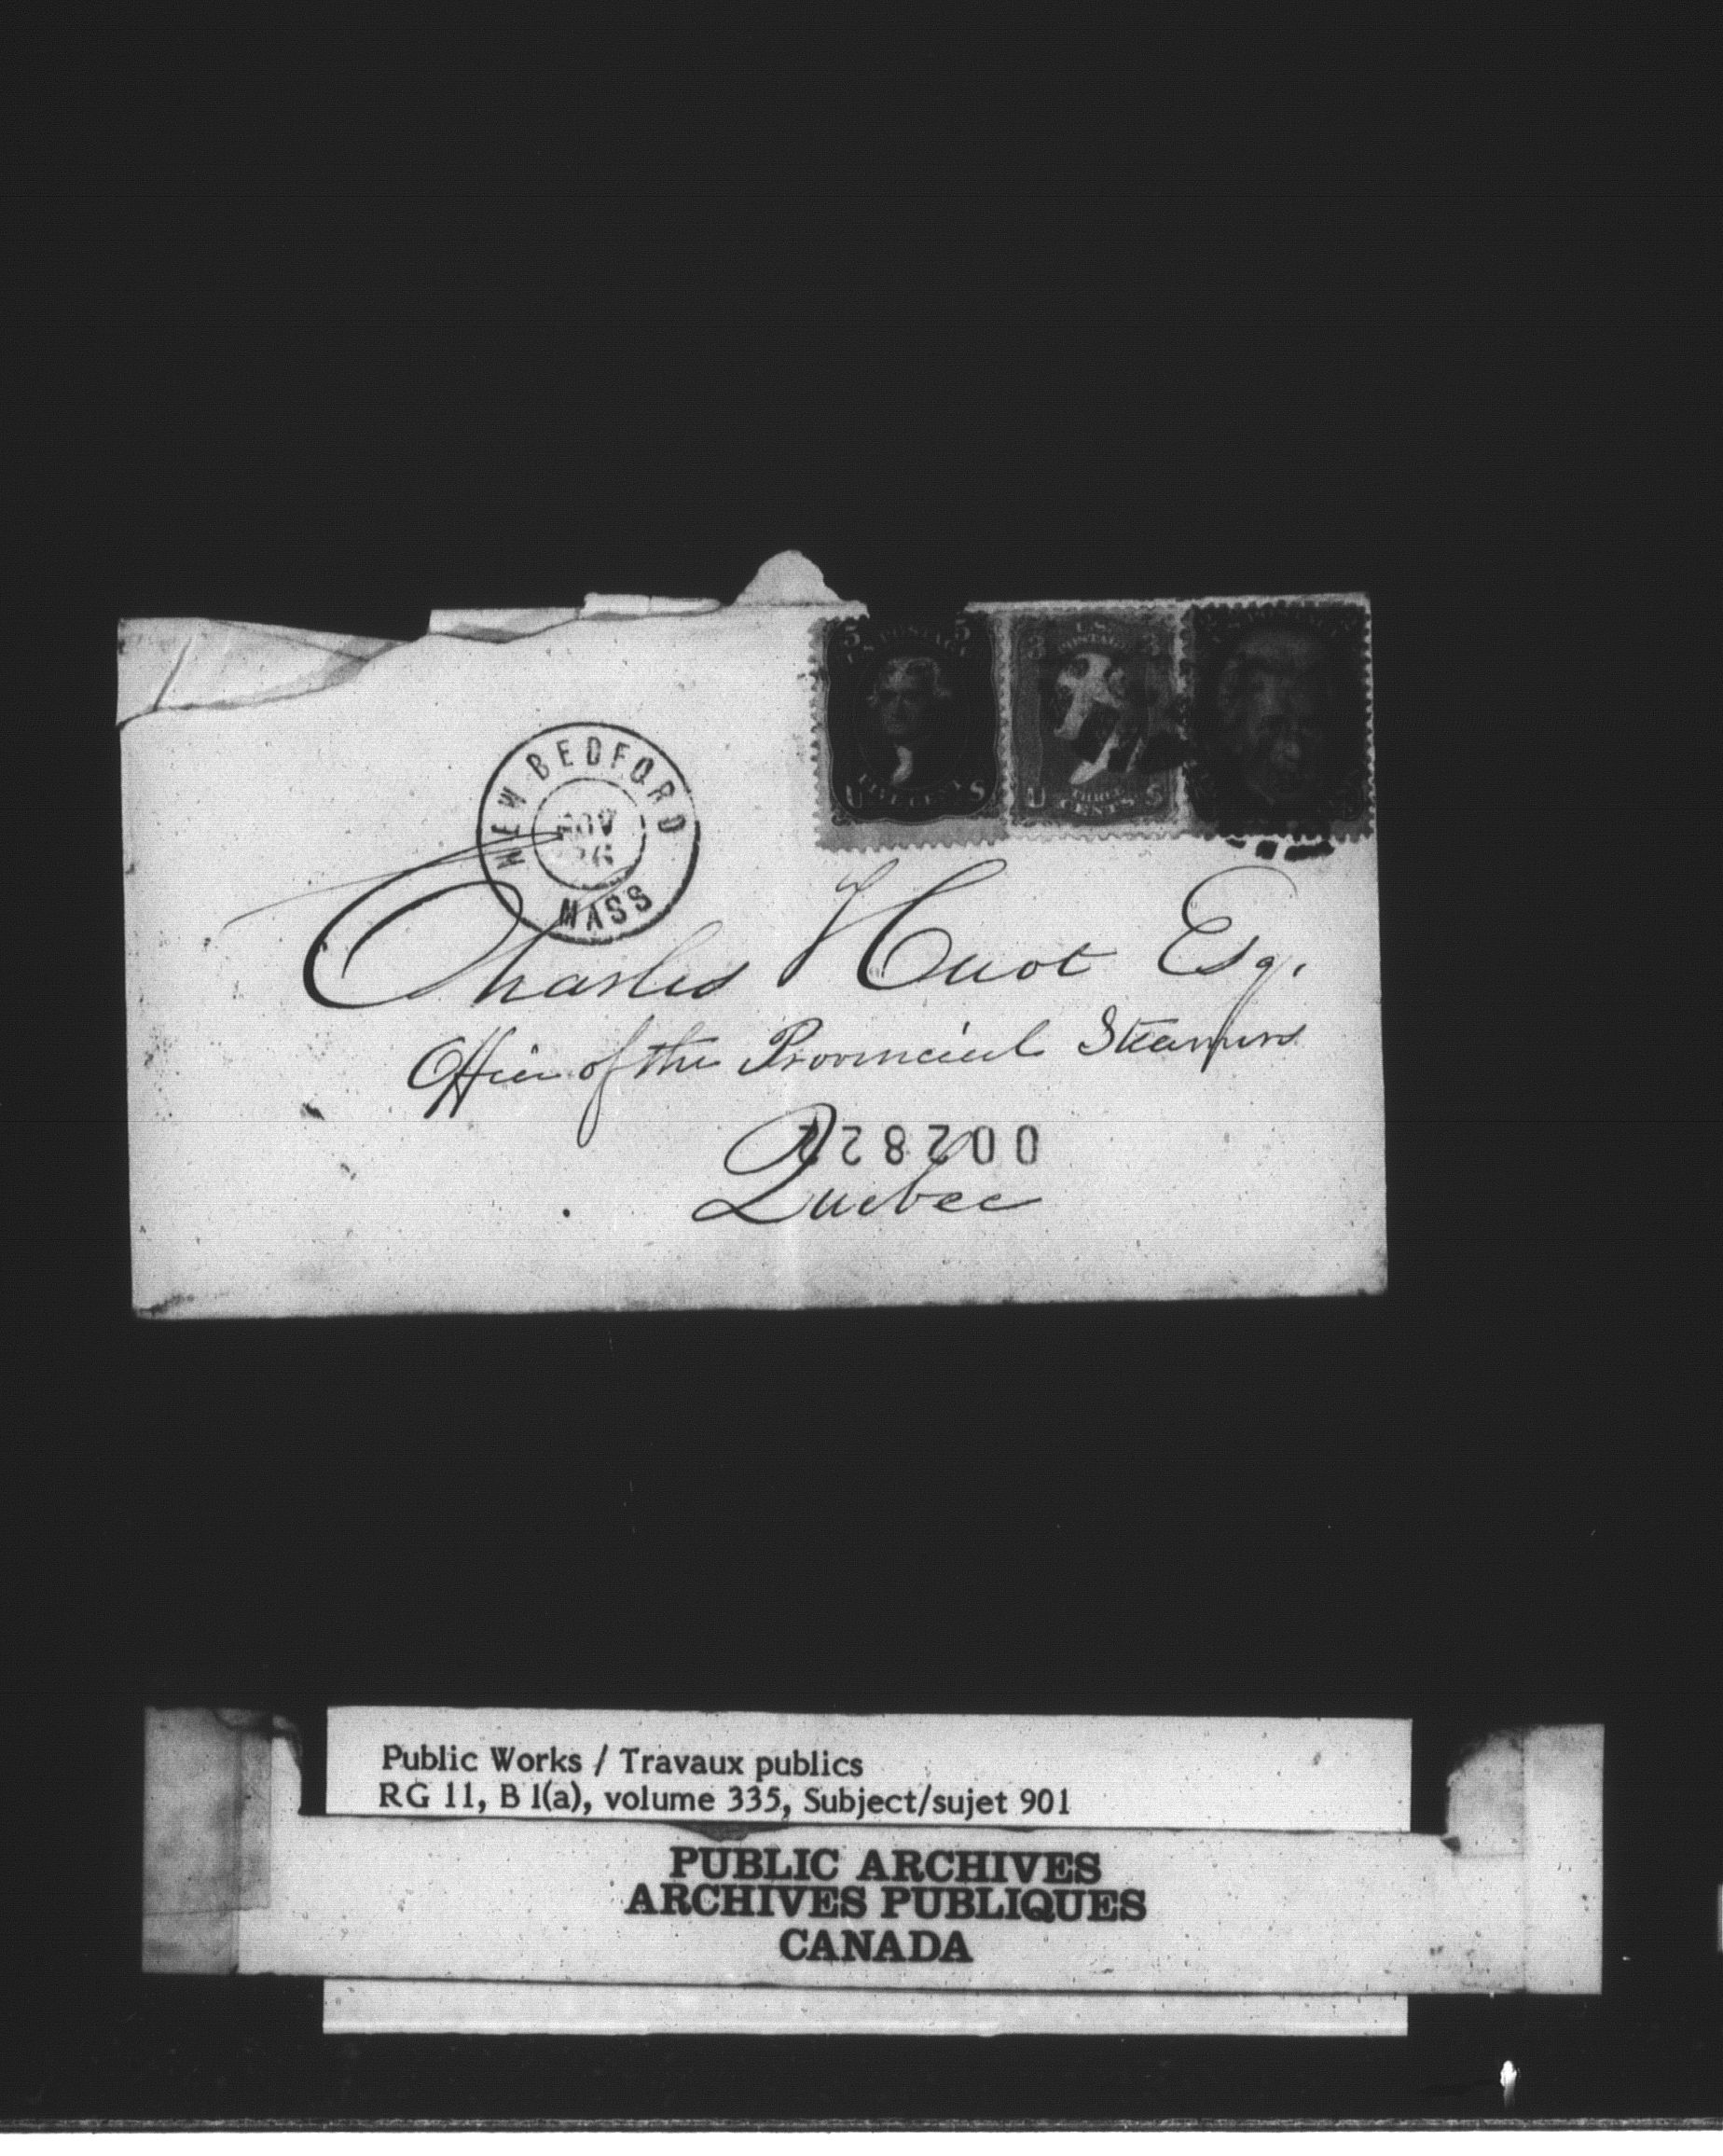 5 U.S. POSTAGE 5
3 U.S. POSTAGE 3
U THREE CENTS S
NEW BEDFORD
NOV
26
MASS
Charles Huot Esq.
Office of the Provincial Steamers
Quebec
Public Works / Travaux publics
RG 11, B 1(a), volume 335, Subject/sujet 901
PUBLIC ARCHIVES
ARCHIVES PUBLIQUES
CANADA